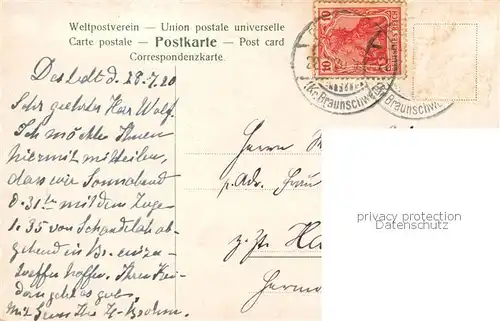 Weltpostverein — Union postale universelle
Carte postale — Postkarte — Post card
Correspondenzkarte.
10 10
Destedt d. 28.7.20
Sehr geehrter Herr Wolf.
Ich möchte Ihnen
hiermit mitteilen,
dass wir Sonnabend
d. 31ten mit dem Zuge
1.35 von Schandelah ab-
gehend in Br. einzu-
treffen hoffen. Ihren
geht es gut.
Mit
(Kr. Braunschweig)
Braunschwe
Herrn
p. Adr. Frau
z. Zt. Ha
Herm
privacy protection
Datenschutz